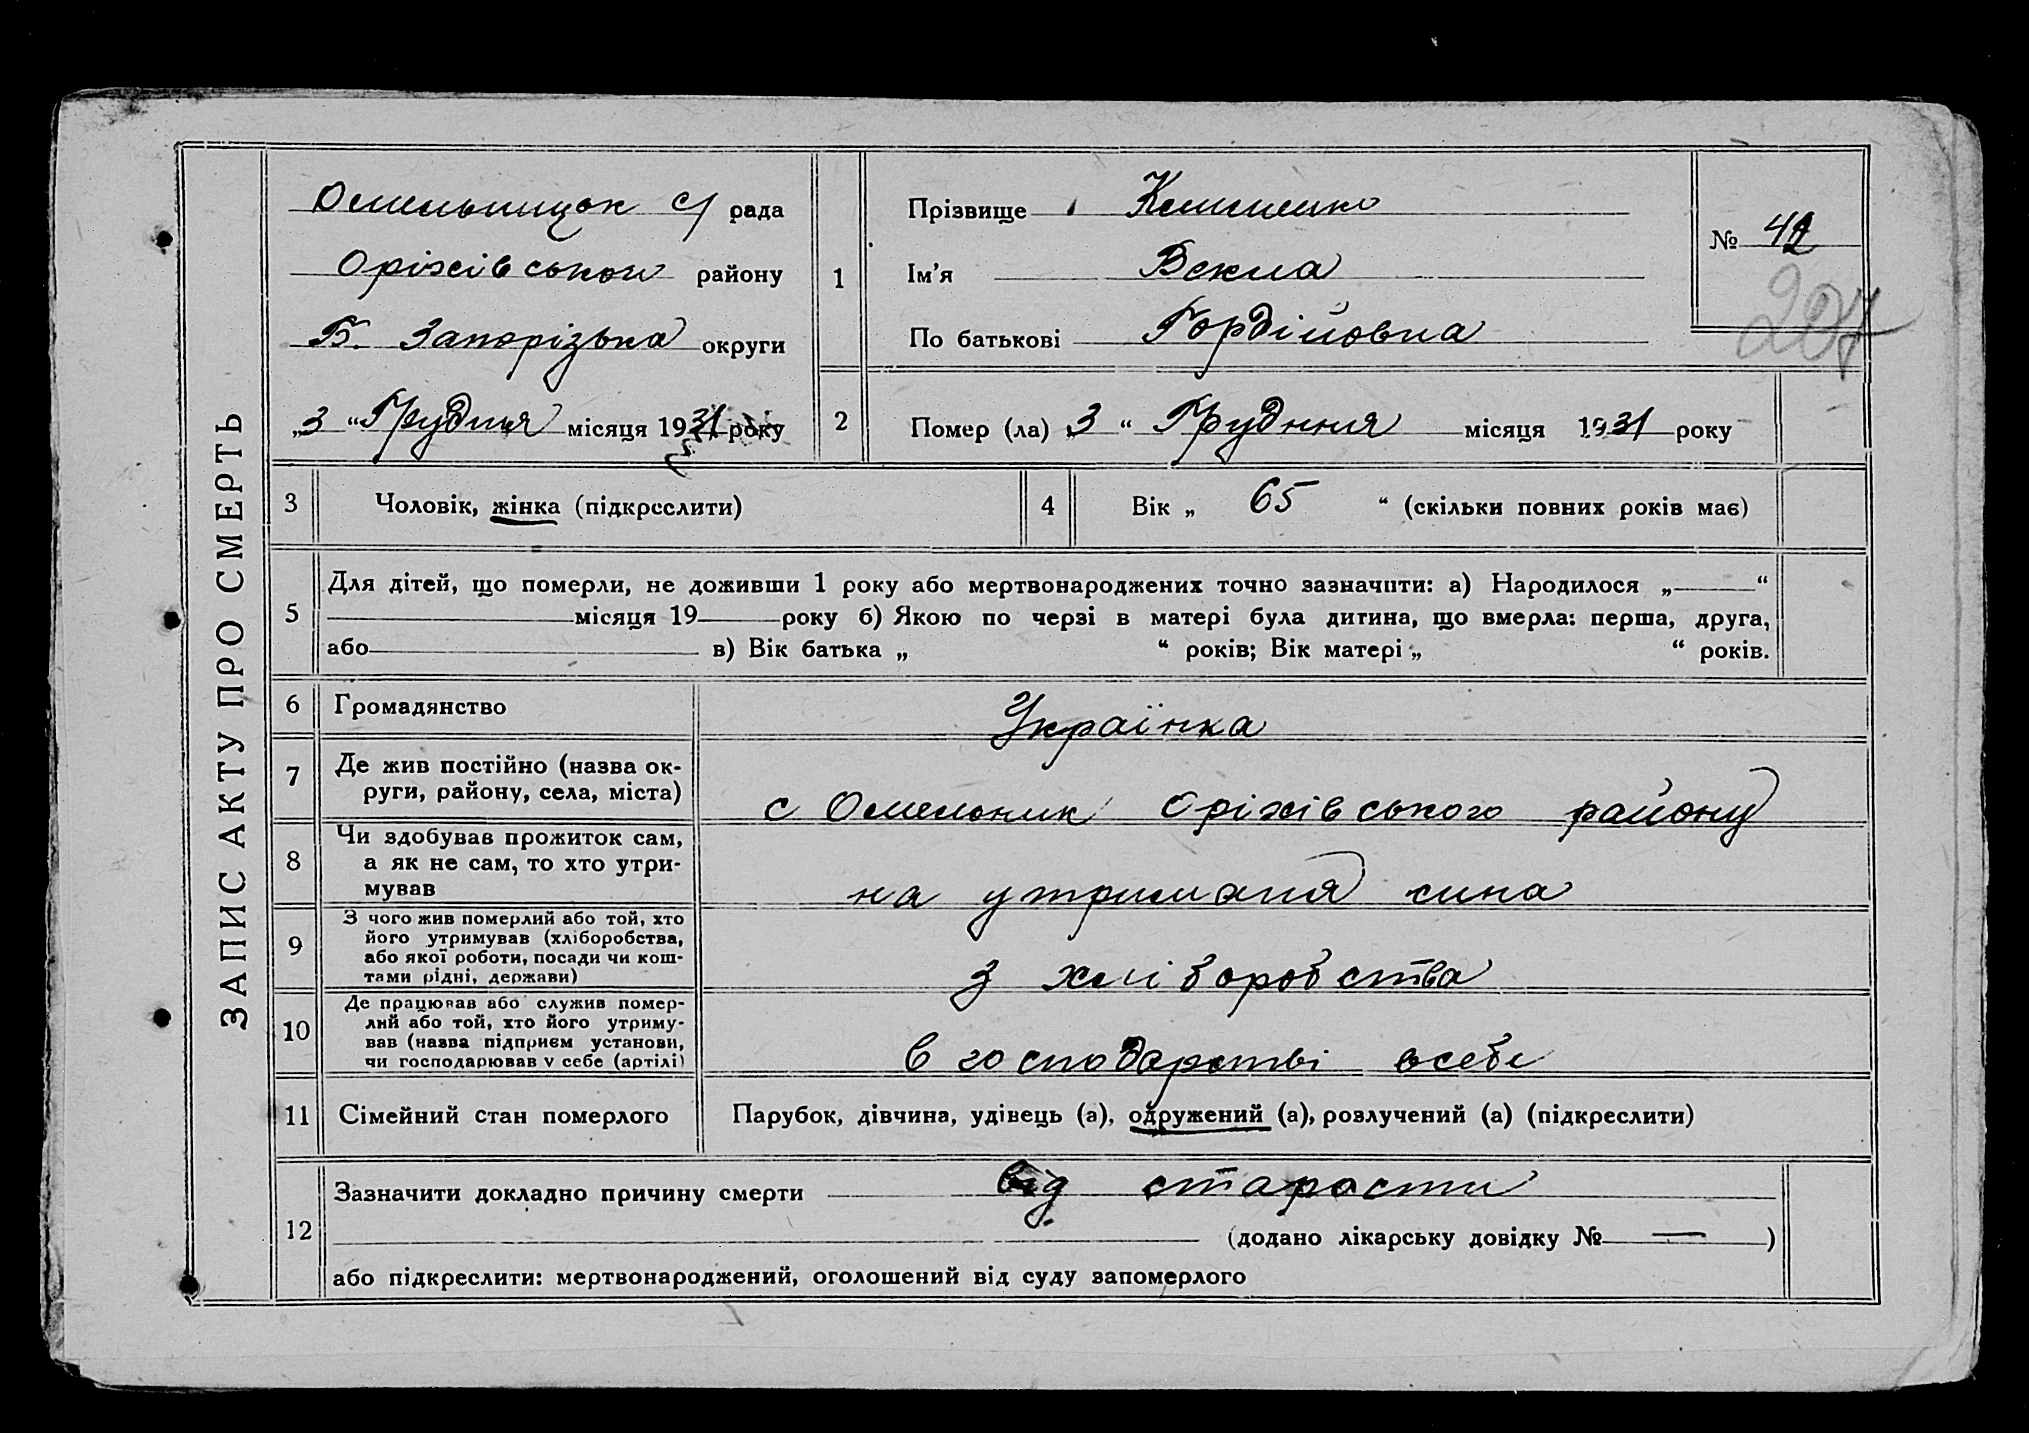 ЗАПИС АКТУ ПРО СМЕРТЬ
Омельницок с/ рада
Оріхівськой району
Б. Запорізька округи
„3 “ Грудня місяця 1931 року
1
Прізвище
Ім’я Векла
По батькові Гордійовна
№ 42
207
2 Помер (ла) „3 “ Грудння місяця 1931 року
3 Чоловік, жінка (підкреслити)
4 Вік „ 65 “ (скільки повних років має)
5 Для дітей, що померли, не доживши 1 року або мертвонароджених точно зазначити: а) Народилося „ “
місяця 19 року б) Якою по черзі в матері була дитина, що вмерла: перша, друга,
або в) Вік батька „ “ років; Вік матері „ “ років.
6 Громадянство Українка
7 Де жив постійно (назва ок-
руги, району, села, міста) с Омельник Оріхівського району
8 Чи здобував прожиток сам,
а як не сам, то хто утри-
мував на утриманя сина
9 З чого жив померлий або той, хто
його утримував (хліборобства,
або якої роботи, посади чи кош-
тами рідні, держави) з хліборобства
10 Де працював або служив помер-
лий або той, хто його утриму-
вав (назва підприєм установи,
чи господарював у себе (артілі) в господарстві всебе
11 Сімейний стан померлого Парубок, дівчина, удівець (а), одружений (а), розлучений (а) (підкреслити)
12 Зазначити докладно причину смерти від старости
(додано лікарську довідку № — )
або підкреслити: мертвонароджений, оголошений від суду запомерлого